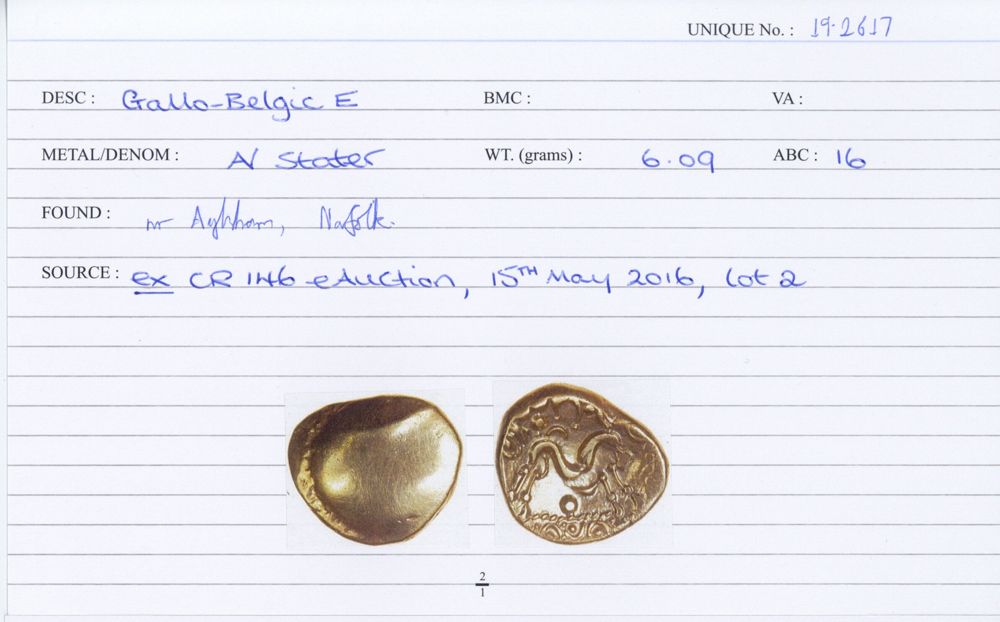 UNIQUE No. : 19.2617
DESC : Gallo-Belgic E BMC : VA :
METAL/DENOM : AV Stater WT. (grams) : 6.09 ABC : 16
FOUND : nr Aylsham, Norfolk.
SOURCE : ex CR 146 eAuction, 15TH May 2016, lot 2
2
1